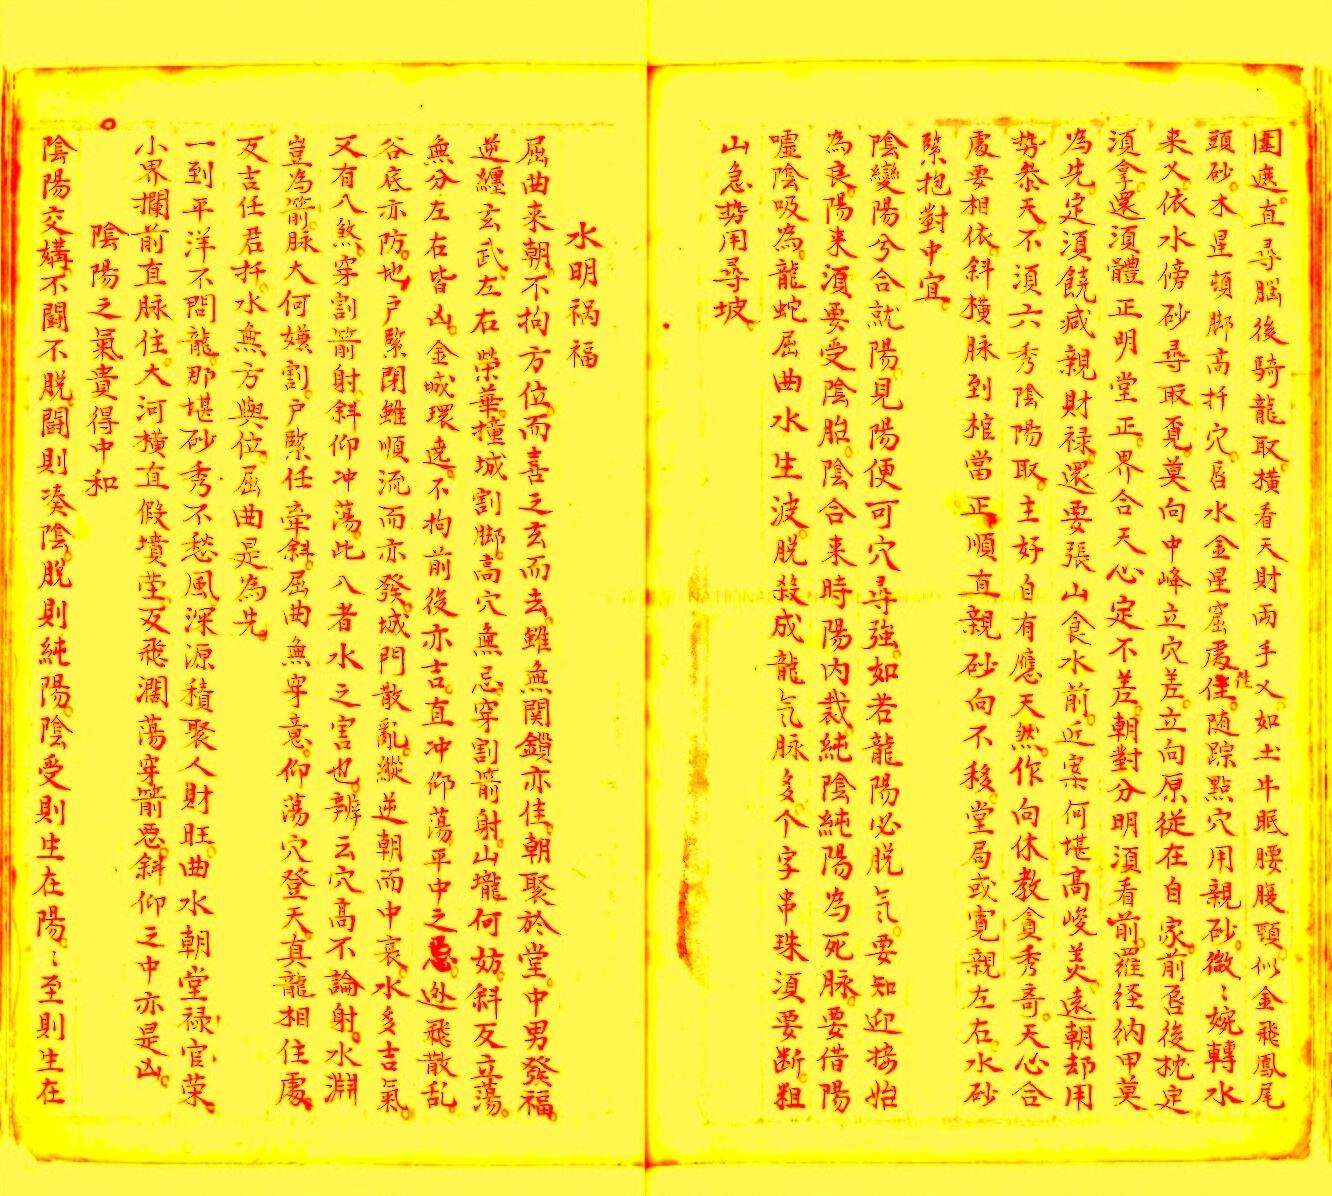 圍遮直尋腦後騎龍取橫看天財兩手乂如土牛眠腰腹顎似金飛鳳尾
頭砂木星頓脚高扦穴居水金星窟處佳隨踪㸃穴用親砂微〻婉轉水
来乂依水傍砂尋取覔莫向中峰立穴差立向原従在自家前启後枕定
須拿還須體正明堂正界合天心定不差朝對分明須看前羅经納甲莫
為先定須饒减親財禄還要張山食水前近案何堪高峻美遠朝却用
势參天不須六秀陰陽取主好自有應天然作向休教貪秀竒天心合
處要相依斜橫脉到棺當正順直親砂向不移堂局或寛親左右水砂
緊抱對中宜
陰變陽兮合就陽見陽便可穴尋強如若龍陽必脱气要知迎接始
為良陽来須要受陰胎陰合来時陽内裁純陰純陽為死脉要借陽
嘘陰吸為龍蛇屈曲水生波脱殺成龍气脉多个字串珠須要断粗
山急势用尋坡
水明祸福
屈曲来朝不拘方位而喜之玄而去雖無関鎖亦佳朝聚於堂中男發福
逆纏玄武左右榮華撞城割脚高穴無忌穿割箭射山壠何妨斜反立蕩
無分左右皆凶金城環遶不拘前後亦吉直冲仰蕩平中之忌迯飛散乱
谷底亦防地户緊閉雖順流而亦發城門散亂縱逆朝而中衰水多吉氣
又有八煞穿割箭射斜仰冲蕩此八者水之害也辨云穴高不論射水淵
豈為箭脉大何嫌割户緊任牽斜屈曲無穿意仰蕩穴登天真龍相住處
反吉任君扦水無方與位屈曲是為先
一到平洋不問龍那堪砂秀不愁風深源積聚人財旺曲水朝堂禄官荣
小界攔前直脉住大河橫直假墳塋反飛濶蕩穿箭惡斜仰之中亦是凶
陰陽之氣貴得中和
陰陽交媾不鬪不脱鬪則凑陰脱則純陽陰受則生在陽〻至則生在